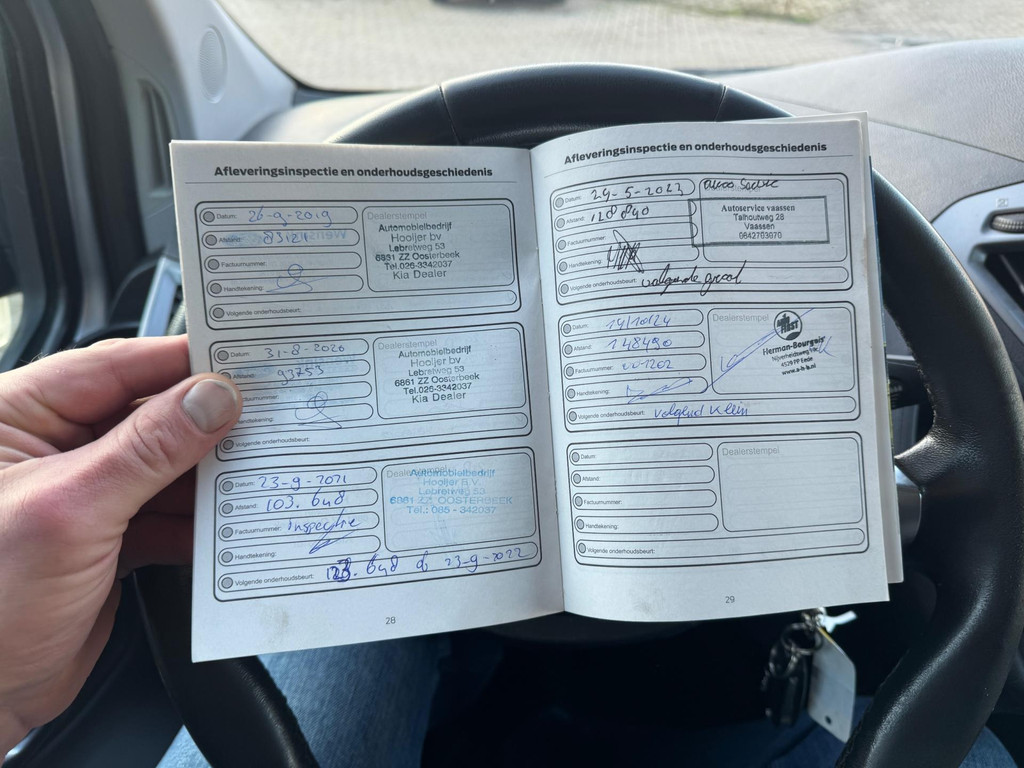 Afleveringsinspectie en onderhoudsgeschiedenis
Datum: 26-9-2019
Afstand: 83121
Factuurnummer:
Handtekening:
Volgende onderhoudsbeurt:
Dealerstempel
Automobielbedrijf
Hooijer bv
Lebretweg 53
6831 ZZ Oosterbeek
Tel.026-3342037
Kia Dealer
Datum: 31-8-2020
Afstand: 93753
Factuurnummer:
Handtekening:
Volgende onderhoudsbeurt:
Dealerstempel
Automobielbedrijf
Hooijer bv
Lebretweg 53
6861 ZZ Oosterbeek
Tel.026-3342037
Kia Dealer
Datum: 23-9-2021
Afstand: 103.648
Factuurnummer: Inspectie
Handtekening:
Volgende onderhoudsbeurt: 123.648 of 23-9-2022
Dealerstempel
Automobielbedrijf
Hooijer B.V.
Lebretweg 53
6861 ZZ OOSTERBEEK
Tel.: 085 - 342037
28
Afleveringsinspectie en onderhoudsgeschiedenis
Datum: 24-5-2023
Afstand: 128840
Factuurnummer:
Handtekening:
Volgende onderhoudsbeurt: volgende groot
Autoservice vaassen
Talhoutweg 28
Vaassen
0642703070
Datum: 14/10/24
Afstand: 148490
Factuurnummer: 001202
Handtekening:
Volgende onderhoudsbeurt: volgend klein
Dealerstempel
FIRST
Herman-Bourgais
Nijverheidsweg
www.a-h-b.nl
Datum:
Afstand:
Factuurnummer:
Handtekening:
Volgende onderhoudsbeurt:
Dealerstempel
29